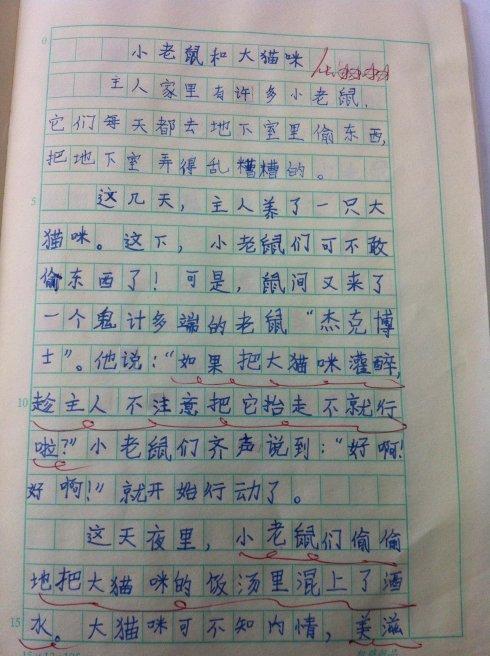 小老鼠和大猫咪
主人家里有许多小老鼠，
它们每天都去地下室里偷东西，
把地下室弄得乱糟糟的。
5
这几天，主人养了一只大
猫咪。这下，小老鼠们可不敢
偷东西了！可是，鼠间又来了
一个鬼计多端的老鼠“杰克博
士”。他说：“如果把大猫咪灌醉，
10
趁主人不注意把它抬走不就行
啦？”小老鼠们齐声说到：“好啊！
好啊！”就开始行动了。
这天夜里，小老鼠们偷偷
地把大猫咪的饭汤里混上了酒
15
水。大猫咪可不知内情，美滋